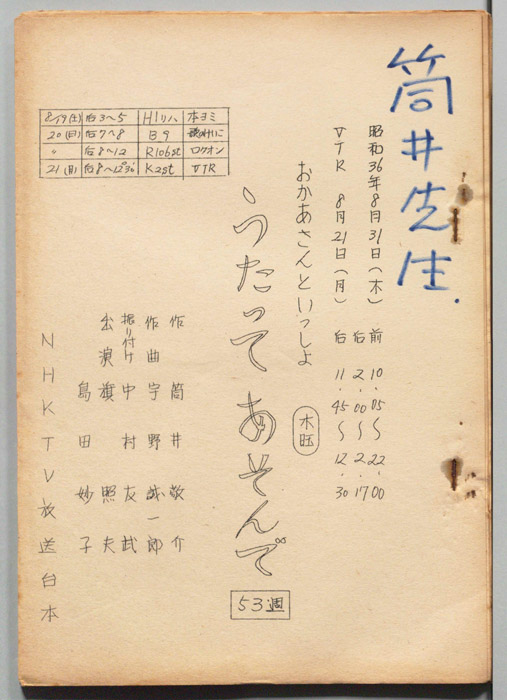 筒井先生.
昭和36年8月31日(木) 前 10・05〜22・00
后 2・00〜2・17
VTR 8月21日(月) 后 11・45〜12・30
おかあさんといっしょ 木旺
うたって あそんで 53週
8/19(土) 后3〜5 H1リハ 本ヨミ
20(日) 后7〜8 B9
〃 后8〜12 R106st ロクオン
21(月) 后8〜12°30 K2st VTR
作 筒井敬介
作曲 宇野誠一郎
振り付け 中村友武
出演 旗照夫
島田妙子
NHKTV放送台本